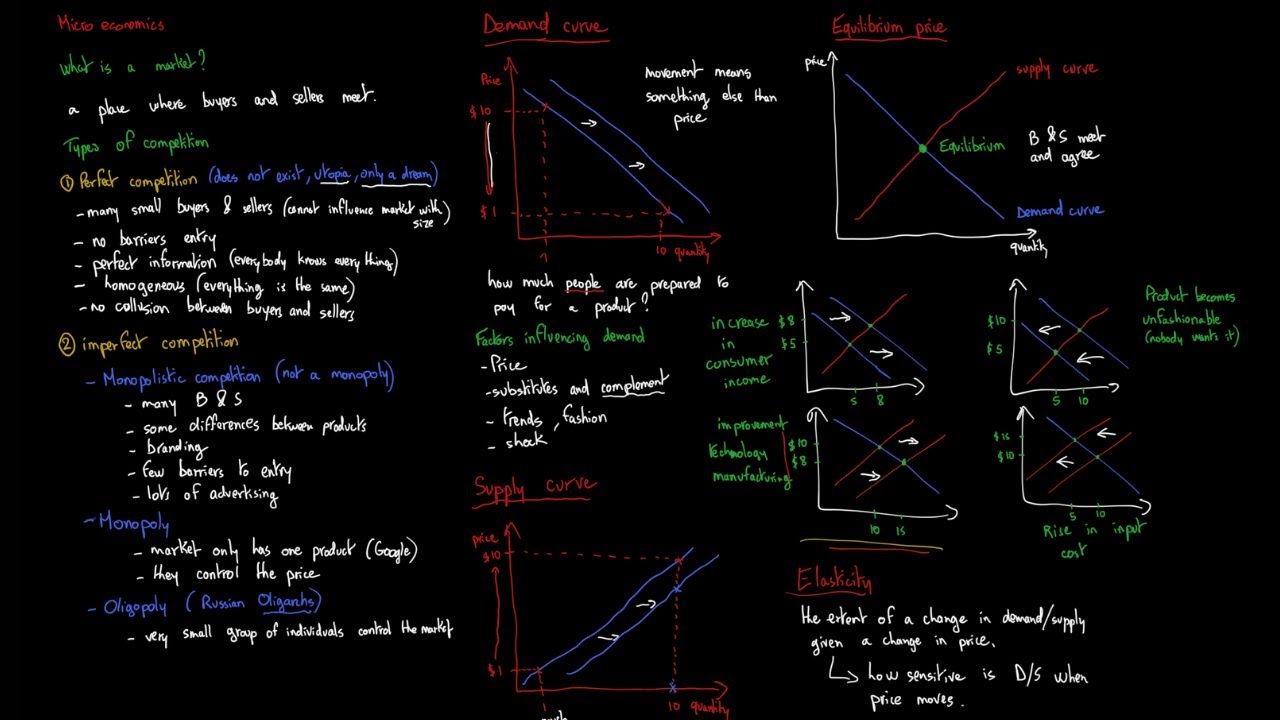 Micro economics
What is a market?
a place where buyers and sellers meet.
Types of competition
① Perfect competition (does not exist, utopia, only a dream)
- many small buyers & sellers (cannot influence market with size)
- no barriers entry
- perfect information (everybody knows everything)
- homogeneous (everything is the same)
- no collusion between buyers and sellers
② imperfect competition
- Monopolistic competition (not a monopoly)
- many B & S
- some differences between products
- branding
- few barriers to entry
- lots of advertising
- Monopoly
- market only has one product (Google)
- they control the price
- Oligopoly (Russian Oligarchs)
- very small group of individuals control the market
Demand curve
Price
$10
$1
1
10 quantity
Movement means
something else than
price
how much people are prepared to
pay for a product?
Factors influencing demand
- Price
- substitutes and complement
- trends, fashion
- shock
Supply curve
price
$10
$1
10 quantity
Equilibrium price
price
supply curve
Equilibrium
B & S meet
and agree
Demand curve
quantity
increase
in
consumer
income
$8
$5
5 8
$10
$5
5 10
Product becomes
unfashionable
(nobody wants it)
improvement
technology
manufacturing
$10
$8
10 15
$15
$10
5 10
Rise in input
cost
Elasticity
the extent of a change in demand/supply
given a change in price.
how sensitive is D/S when
price moves.